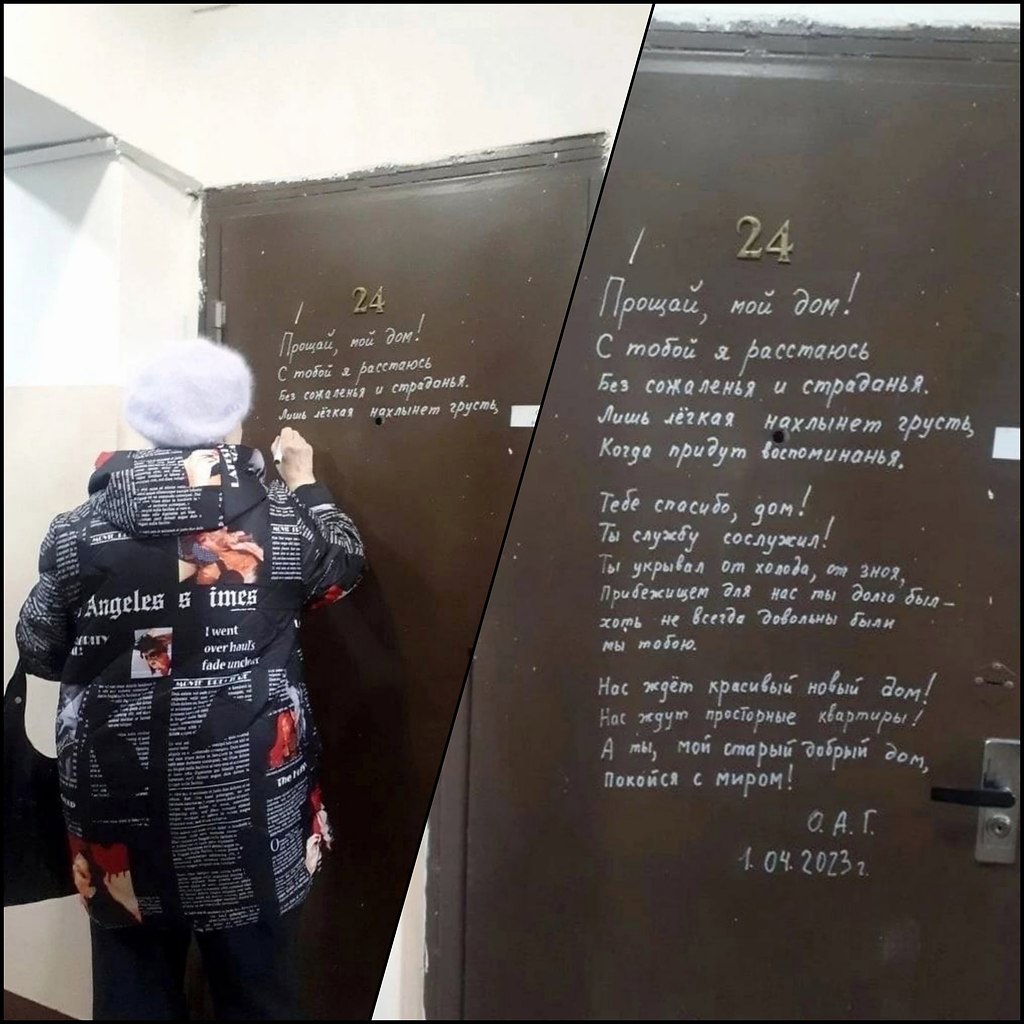 24
Прощай, мой дом!
С тобой я расстаюсь
Без сожаленья и страданья.
Лишь лёгкая нахлынет грусть,
Angeles
imes
I went
over haul's
MOVIE
24
Прощай, мой дом!
С тобой я расстаюсь
Без сожаленья и страданья.
Лишь лёгкая нахлынет грусть,
Когда придут воспоминанья.
Тебе спасибо, дом!
Ты службу сослужил!
Ты укрывал от холода, от зноя,
Прибежищем для нас ты долго был –
хоть не всегда довольны были
мы тобою.
Нас ждёт красивый новый дом!
Нас ждут просторные квартиры!
А ты, мой старый добрый дом,
Покойся с миром!
О. А. Г.
1.04.2023г.